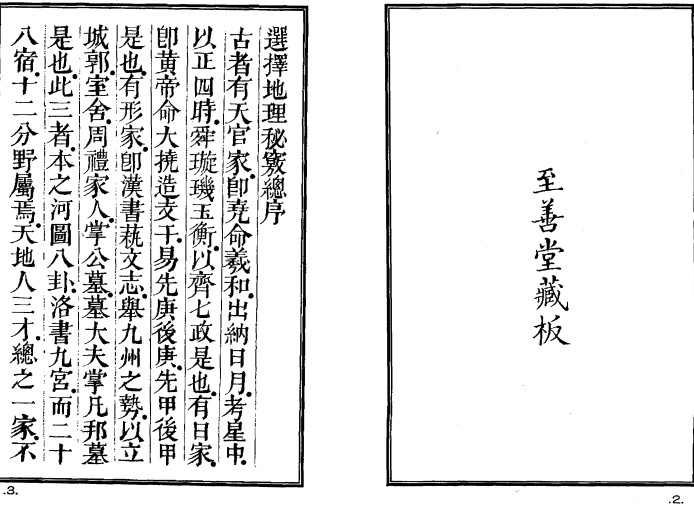 至善堂藏板
.2.
選擇地理秘竅總序
古者有天官家.卽堯命羲和.出納日月.考星中.
以正四時.舜璇璣玉衡.以齊七政是也.有日家.
卽黃帝命大撓造支干.易先庚後庚.先甲後甲
是也.有形家.卽漢書蓺文志.舉九州之勢.以立
城郭.室舍.周禮家人.掌公墓.墓大夫掌凡邦墓
是也.此三者.本之河圖八卦.洛書九宮.而二十
八宿.十二分野屬焉.天地人三才.總之一家.不
.3.